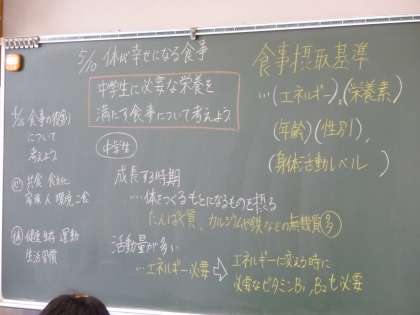 5/10 体が幸せになる食事
中学生に必要な栄養を
満たす食事について考えよう
食事の役割
について
考えよう
共食 食文化
健康 生活 運動
生活習慣
中学生
成長する時期
…体をつくるもとになるものを摂る
たんぱく質、カルシウムや鉄などの無機質多
活動量が多い
…エネルギー必要 ⇨ エネルギーに変える時に
必要なビタミンB₁、B₂も必要
食事摂取基準
…(エネルギー)、(栄養素)
(年齢)(性別)、
(身体活動レベル)